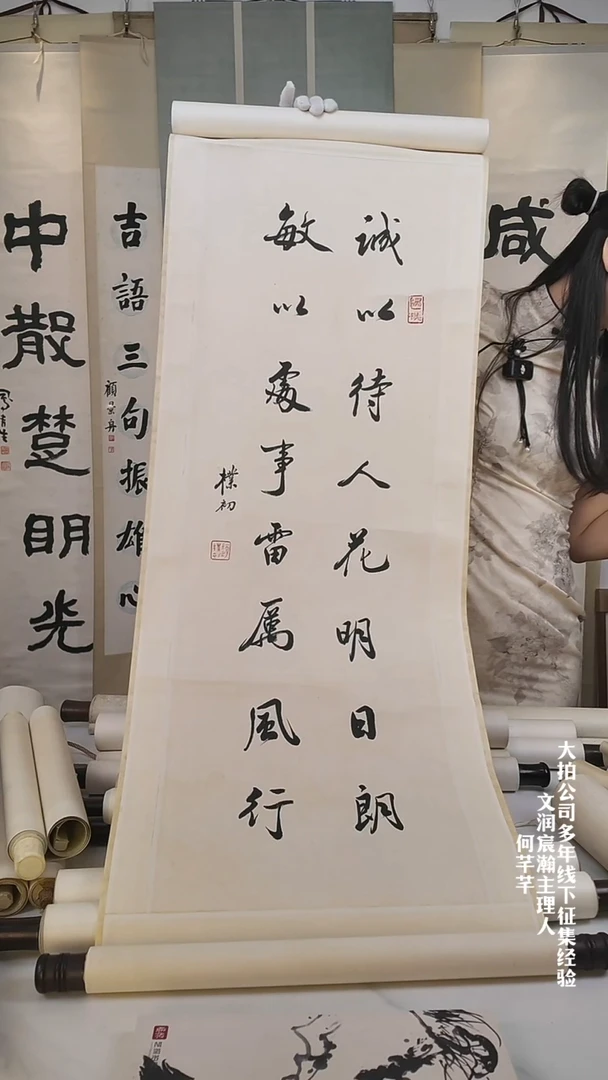 誠以待人花明日朗
敏以處事雷厲風行
樸初
咸
吉語三句振雄心
顧景舟
中散楚明光
大拍公司多年线下征集经验
文润宸瀚主理人
何芊芊